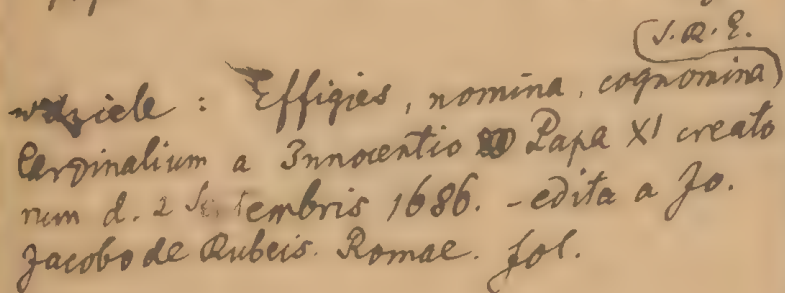 S.R.E.
w dziele : Effigies, nomina, cognomina
Cardinalium a Innocentio Papa XI creato
rum d. 2 Septembris 1686. - edita a Jo.
Jacobo de Rubeis. Romae. fol.